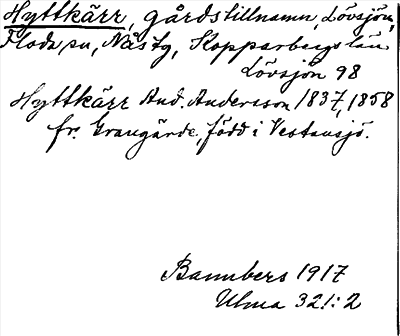 Hyttkärr, gårdstillnamn, Lövsjön,
Floda sn, Nås tg, Kopparbergs län
Lövsjön 98
Hyttkärr And. Andersson 1837, 1858
fr. Grangärde, född i Vestansjö.
Bannbers 1917
Ulma 321:2